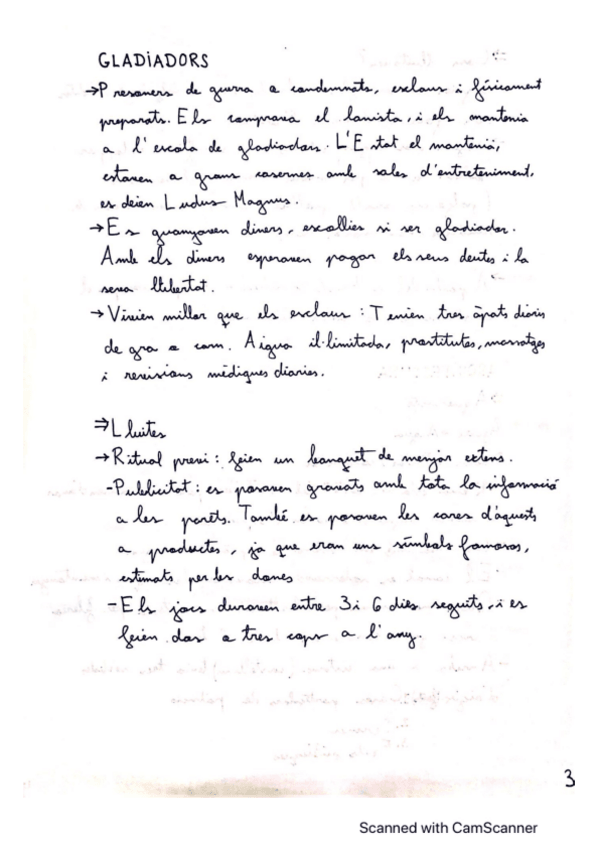 GLADiADORS
→Presoners de guerra o condemnats, esclaus i físicament
preparats. Els comprava el lanista, i els mantenia
a l'escola de gladiadors. L'Estat el mantenia,
estaven a grans casernes amb sales d'entreteniment,
es deien Ludus Magnus.
→Es guanyaven diners, escollies si ser gladiador.
Amb els diners esperaven pagar els seus deutes i la
seva llibertat.
→Vivien millor que els esclaus: Tenien tres àpats diaris
de gra o carn. Aigua il·limitada, prostitutes, massatges
i revisions mèdiques diaries.
⇒Lluites
→Ritual previ: feien un banquet de menjar extens.
-Publicitat: es posaven gravats amb tota la informació
a les parets. També es posaven les cares d'aquests
a productes, ja que eran uns símbols famosos,
estimats per les dones
-Els jocs duraven entre 3 i 6 dies seguits, i es
feien dos o tres cops a l'any.
3
Scanned with CamScanner